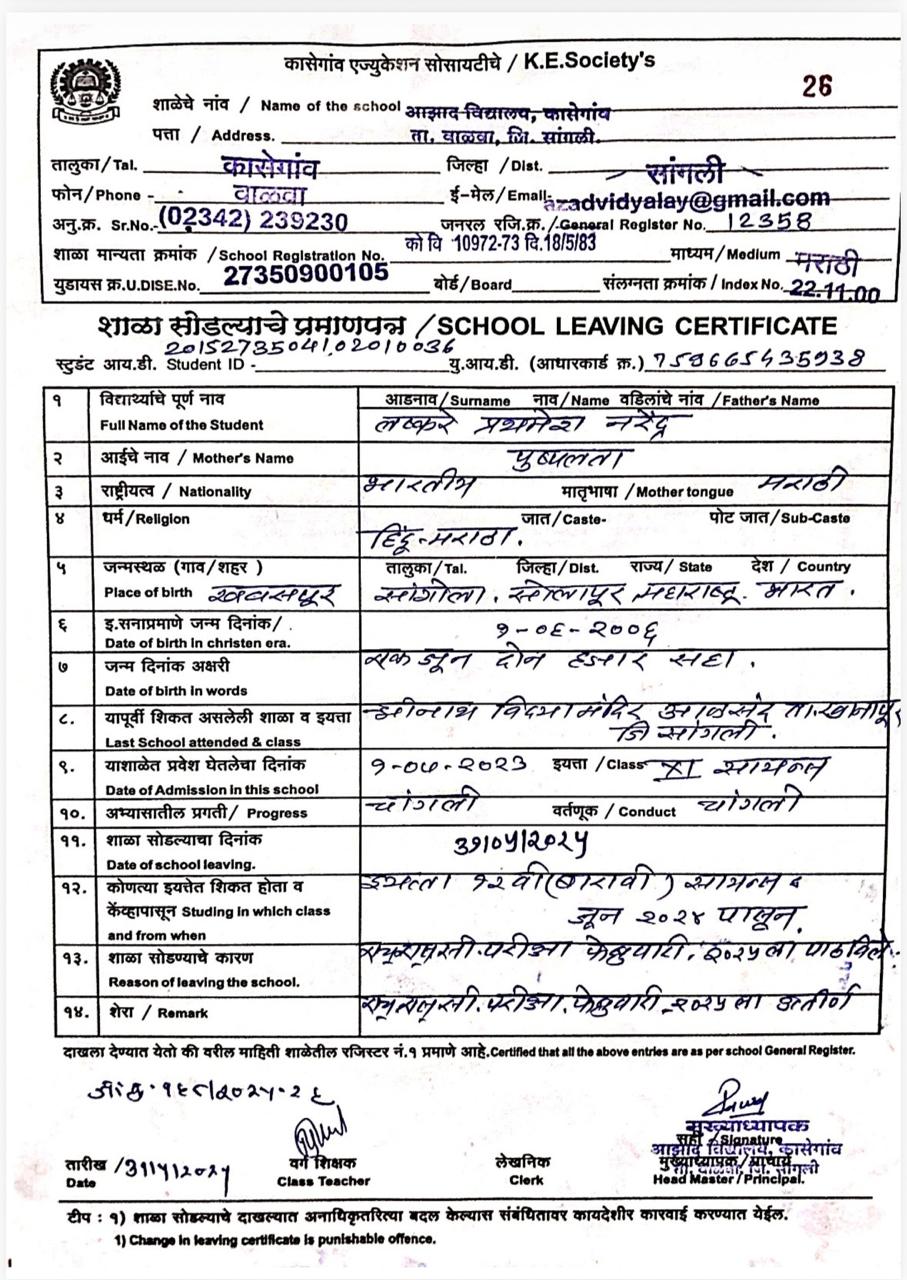 कासेगांव एज्युकेशन सोसायटीचे / K.E.Society's
26
शाळेचे नांव / Name of the school आझाद विद्यालय, कासेगांव
पत्ता / Address. ता. वाळवा, जि. सांगली.
तालुका/Tal. कासेगांव जिल्हा /Dist. सांगली
फोन/Phone - वाळवा ई-मेल/Email- azadvidyalay@gmail.com
अनु.क्र. Sr.No.- (02342) 239230 जनरल रजि.क्र./General Register No. 12358
शाळा मान्यता क्रमांक /School Registration No. को वि 10972-73 दि.18/5/83 माध्यम/Medium मराठी
युडायस क्र.U.DISE.No. 27350900105 बोर्ड/Board संलग्नता क्रमांक / Index No. 22.11.00
शाळा सोडल्याचे प्रमाणपत्र / SCHOOL LEAVING CERTIFICATE
स्टुडंट आय.डी. Student ID - 2015273504102010036 यु.आय.डी. (आधारकार्ड क्र.) 759665435938
१ विद्यार्थ्याचे पूर्ण नाव आडनाव/Surname नाव/Name वडिलांचे नांव /Father's Name
Full Name of the Student लष्करे प्रथमेश नरेंद्र
२ आईचे नाव / Mother's Name पुष्पलता
३ राष्ट्रीयत्व / Nationality भारतीय मातृभाषा /Mother tongue मराठी
४ धर्म/Religion जात/Caste- पोट जात/Sub-Caste
हिंदू-मराठा.
५ जन्मस्थळ (गाव/शहर ) तालुका/Tal. जिल्हा/Dist. राज्य/ State देश / Country
Place of birth खवासपूर सांगोला. सोलापूर महाराष्ट्र. भारत.
६ इ.सनाप्रमाणे जन्म दिनांक/. १-०६-२००६
Date of birth in christen era.
७ जन्म दिनांक अक्षरी एक जून दोन हजार सहा.
Date of birth in words
८. यापूर्वी शिकत असलेली शाळा व इयत्ता श्रीनाथ विद्यामंदिर आळसंद ता.खानापूर
Last School attended & class जि सांगली.
९. याशाळेत प्रवेश घेतलेचा दिनांक इयत्ता /Class XI सायन्स
Date of Admission in this school
१०. अभ्यासातील प्रगती/ Progress चांगली वर्तणूक / Conduct चांगली
११. शाळा सोडल्याचा दिनांक ३१/०५/२०२५
Date of school leaving.
१२. कोणत्या इयत्तेत शिकत होता व इयत्ता १२ वी(बारावी) सायन्स
केंव्हापासून Studing in which class जून २०२४ पासून.
and from when
१३. शाळा सोडण्याचे कारण एच्.एस्.सी.परीक्षा फेब्रुवारी. २०२५ला पाठविले.
Reason of leaving the school.
१४. शेरा / Remark एच्.एस्.सी.परीक्षा.फेब्रुवारी.२०२५ला उत्तीर्ण
दाखला देण्यात येतो की वरील माहिती शाळेतील रजिस्टर नं.१ प्रमाणे आहे.Certified that all the above entries are as per school General Register.
मुख्याध्यापक
सही /Signature
आझाद विद्यालय, कासेगांव
तारीख / ३१/५/२०२५ वर्ग शिक्षक लेखनिक मुख्याध्यापक/प्राचार्य
ता. वाळवा, जि. सांगली
Date Class Teacher Clerk Head Master / Principal.
टीप : १) शाळा सोडल्याचे दाखल्यात अनाधिकृतरित्या बदल केल्यास संबंधितावर कायदेशीर कारवाई करण्यात येईल.
1) Change in leaving certificate is punishable offence.